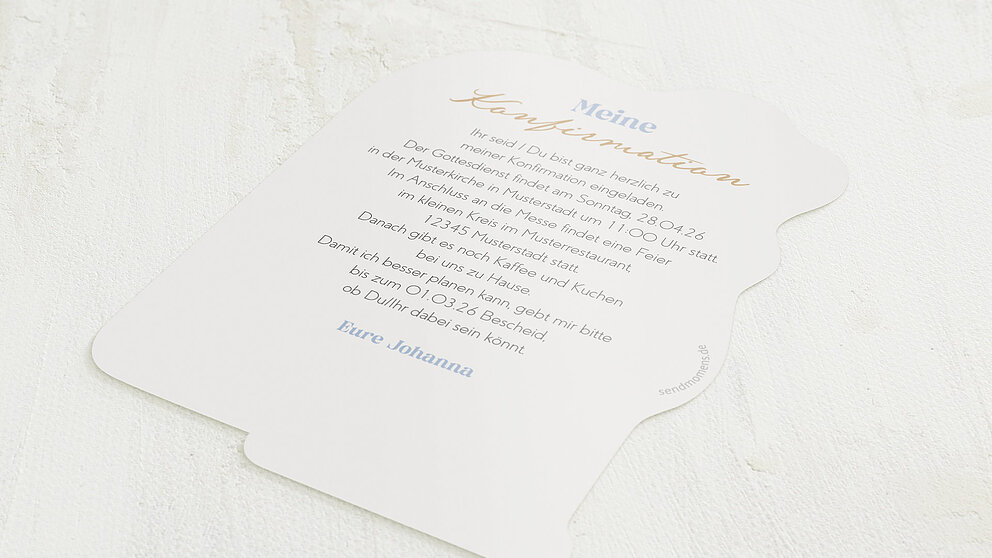 Meine
Konfirmation
Ihr seid / Du bist ganz herzlich zu
meiner Konfirmation eingeladen.
Der Gottesdienst findet am Sonntag, 28.04.26
in der Musterkirche in Musterstadt um 11:00 Uhr statt.
Im Anschluss an die Messe findet eine Feier
im kleinen Kreis im Musterrestaurant,
12345 Musterstadt statt.
Danach gibt es noch Kaffee und Kuchen
bei uns zu Hause.
Damit ich besser planen kann, gebt mir bitte
bis zum 01.03.26 Bescheid,
ob Du/Ihr dabei sein könnt.
Eure Johanna
sendmoments.de